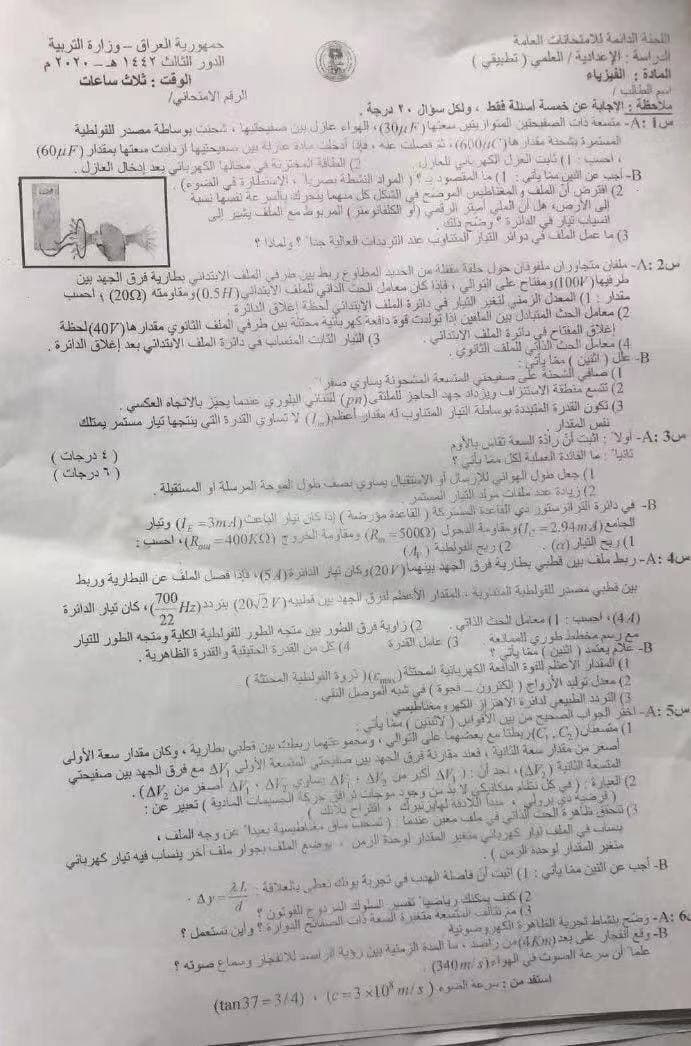 اللجنة الدائمة للامتحانات العامة
الدراسة : الإعدادية / العلمي ( تطبيقي )
المادة : الفيزياء
اسم الطالب /
جمهورية العراق – وزارة التربية
الدور الثالث ١٤٤٢ هـ – ٢٠٢٠ م
الوقت : ثلاث ساعات
الرقم الامتحاني/
ملاحظة : الإجابة عن خمسة أسئلة فقط ، ولكل سؤال ٢٠ درجة .
س1 :A- متسعة ذات الصفيحتين المتوازيتين سعتها (30μF)، الهواء عازل بين صفيحتيها ، شحنت بوساطة مصدر للفولطية
المستمرة بشحنة مقدارها (600μC)، ثم فصلت عنه ، فإذا أدخلت مادة عازلة بين صفيحتيها ازدادت سعتها بمقدار (60μF)
، احسب : 1) ثابت العزل الكهربائي للعازل . 2) الطاقة المختزنة في مجالها الكهربائي بعد إدخال العازل .
B- أجب عن اثنين مما يأتي : 1) ما المقصود بـ ؟ ( المواد النشطة بصرياً ، الاستطارة في الضوء)
2) افترض أنّ الملف والمغناطيس الموضح في الشكل كل منهما يتحرك بالسرعة نفسها نسبة
إلى الأرض، هل أن الملي أميتر الرقمي (أو الكلفانوميتر) المربوط مع الملف يشير إلى
انسياب تيار في الدائرة ؟ وضّح ذلك .
3) ما عمل الملف في دوائر التيار المتناوب عند الترددات العالية جداً ؟ ولماذا ؟
س2 :A- ملفان متجاوران ملفوفان حول حلقة مقفلة من الحديد المطاوع ربط بين طرفي الملف الابتدائي بطارية فرق الجهد بين
طرفيها (100V) ومفتاح على التوالي ، فإذا كان معامل الحث الذاتي للملف الابتدائي (0.5H) ومقاومته (20Ω) ؛ احسب
مقدار : 1) المعدل الزمني لتغير التيار في دائرة الملف الابتدائي لحظة إغلاق الدائرة
2) معامل الحث المتبادل بين الملفين إذا تولدت قوة دافعة كهربائية محتثة بين طرفي الملف الثانوي مقدارها (40V) لحظة
إغلاق المفتاح في دائرة الملف الابتدائي . 3) التيار الثابت المنساب في دائرة الملف الابتدائي بعد إغلاق الدائرة .
4) معامل الحث الذاتي للملف الثانوي .
B- علل ( اثنين ) مما يأتي :
1) صافي الشحنة على صفيحتي المتسعة المشحونة يساوي صفراً .
2) تتسع منطقة الاستنزاف ويزداد جهد الحاجز للملتقى (pn) للثنائي البلوري عندما يحيز بالاتجاه العكسي .
3) تكون القدرة المتبددة بوساطة التيار المتناوب له مقدار أعظم (Im) لا تساوي القدرة التي ينتجها تيار مستمر يمتلك
نفس المقدار .
س3 :A- أولاً : اثبت أنّ رادّة السعة تقاس بالأوم ( ٤ درجات )
ثانياً : ما الفائدة العملية لكل مما يأتي ؟ ( ٦ درجات )
1) جعل طول الهوائي للإرسال أو الاستقبال يساوي نصف طول الموجة المرسلة او المستقبلة .
2) زيادة عدد ملفات مولد التيار المستمر .
B- في دائرة الترانزستور ذي القاعدة المشتركة ( القاعدة مؤرضة ) إذا كان تيار الباعث (IE =3mA) وتيار
الجامع (IC = 2.94mA) ومقاومة الدخول (Rin = 500Ω) ومقاومة الخروج (Rout =400KΩ)، احسب :
1) ربح التيار (α) . 2) ربح الفولطية (Av)
س4 :A- ربط ملف بين قطبي بطارية فرق الجهد بينهما (20V) وكان تيار الدائرة (5A)، فإذا فصل الملف عن البطارية وربط
بين قطبي مصدر للفولطية المتناوبة ، المقدار الأعظم لفرق الجهد بين قطبيه (20√2 V) بتردد (700/22 Hz)، كان تيار الدائرة
(4A) ، احسب : 1) معامل الحث الذاتي . 2) زاوية فرق الطور بين متجه الطور للفولطية الكلية ومتجه الطور للتيار
مع رسم مخطط طوري للممانعة . 3) عامل القدرة 4) كل من القدرة الحقيقية والقدرة الظاهرية .
B- علامَ يعتمد ( اثنين ) مما يأتي ؟
1) المقدار الأعظم للقوة الدافعة الكهربائية المحتثة (εmax) ( ذروة الفولطية المحتثة )
2) معدل توليد الأزواج ( إلكترون – فجوة ) في شبه الموصل النقي .
3) التردد الطبيعي لدائرة الاهتزاز الكهرومغناطيسي
س5 :A- اختر الجواب الصحيح من بين الأقواس ( لاثنين ) مما يأتي :
1) متسعتان (C1, C2) ربطتا مع بعضهما على التوالي ، ومجموعتهما ربطت بين قطبي بطارية ، وكان مقدار سعة الأولى
أصغر من مقدار سعة الثانية ، فعند مقارنة فرق الجهد بين صفيحتي المتسعة الأولى ΔV1 مع فرق الجهد بين صفيحتي
المتسعة الثانية (ΔV2)، نجد أن : ( ΔV1 أكبر من ΔV2 ، ΔV1 يساوي ΔV2 ، ΔV1 أصغر من ΔV2 ) .
2) العبارة : ( في كل نظام ميكانيكي لا بد من وجود موجات ترافق حركة الجسيمات المادية ) تعبير عن :
( فرضية دي برولي ، مبدأ اللادقة لهايزنبرك ، اقتراح بلانك )
3) تتحقق ظاهرة الحث الذاتي في ملف معين عندما : ( تسحب ساق مغناطيسية بعيداً عن وجه الملف ،
ينساب في الملف تيار كهربائي متغير المقدار لوحدة الزمن ، يوضع الملف بجوار ملف آخر ينساب فيه تيار كهربائي
متغير المقدار لوحدة الزمن ) .
B- أجب عن اثنين مما يأتي : 1) اثبت أنّ فاصلة الهدب في تجربة يونك تعطى بالعلاقة : Δy = λL/d .
2) كيف يمكنك رياضياً تفسير السلوك المزدوج للفوتون ؟
3) مم تتألف المتسعة متغيرة السعة ذات الصفائح الدوارة ؟ وأين تستعمل ؟
س6 :A- وضّح بنشاط تجربة الظاهرة الكهروضوئية .
B- وقع انفجار على بعد (4Km) من راصد ، ما المدة الزمنية بين رؤية الراصد للانفجار وسماع صوته ؟
علماً أن سرعة الصوت في الهواء (340m/s) .
استفد من : سرعة الضوء (c = 3 ×10⁸ m/s) ، (tan37 = 3/4)